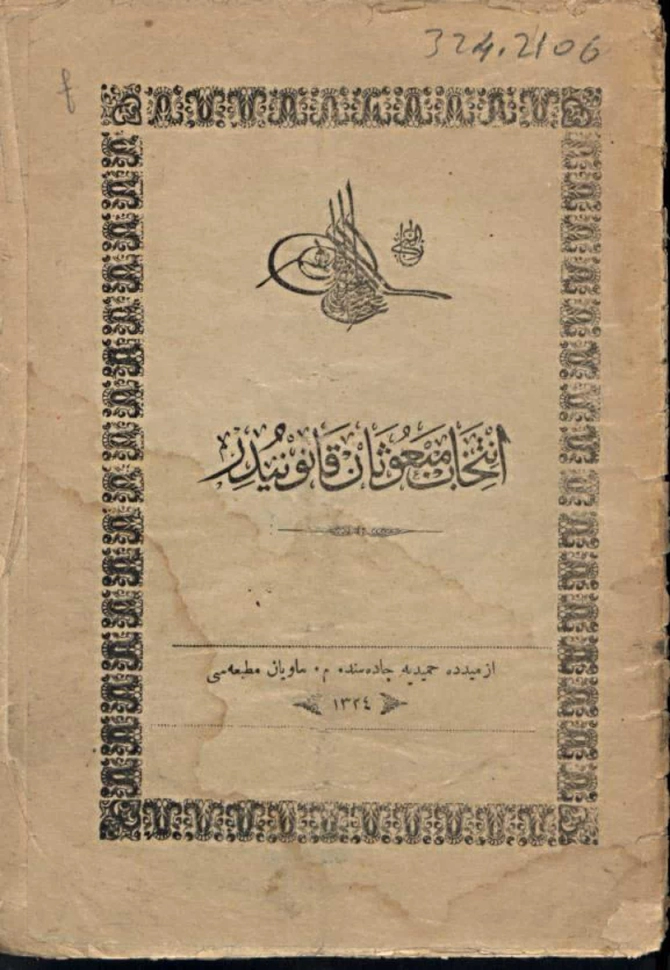 324.2106
انتخاب مبعوثان قانونیدر
ازمیدده حمیدیه جاده‌سنده م. ماویان مطبعه‌سی
١٣٢٤